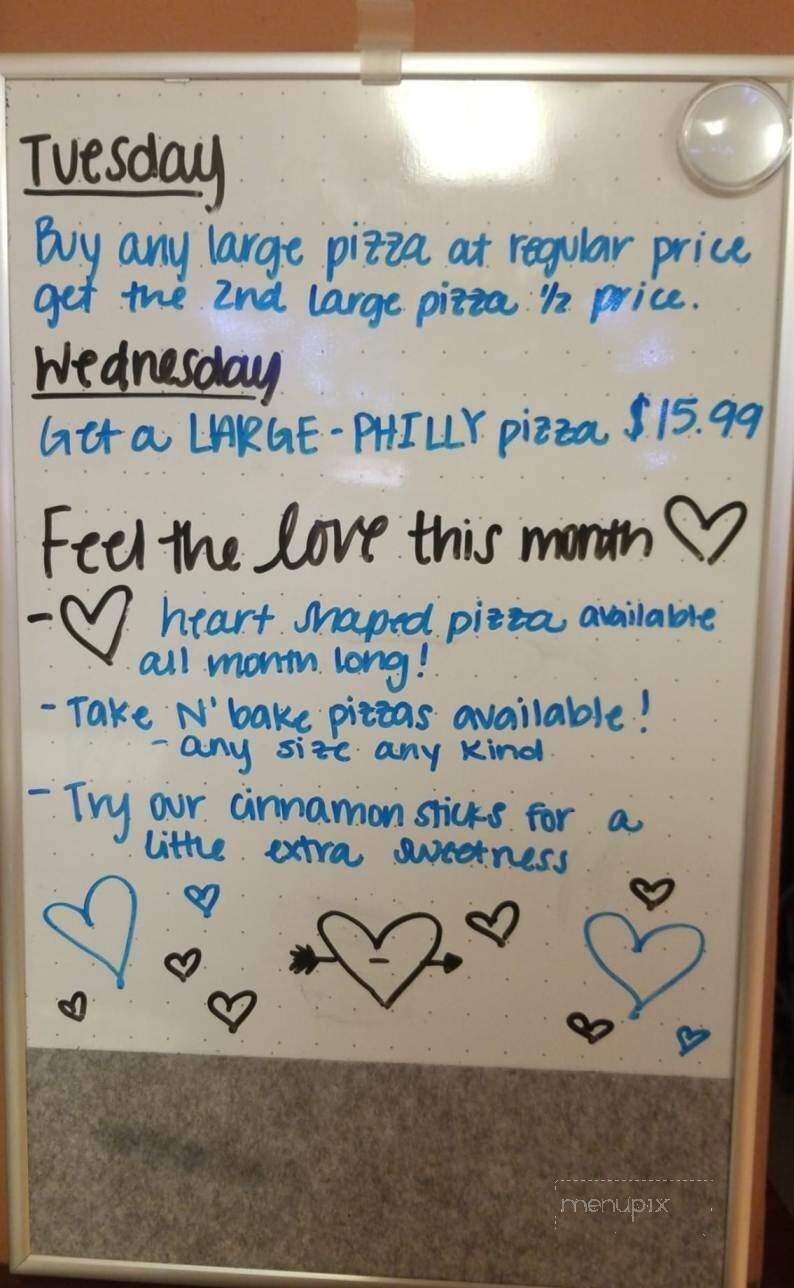 Tuesday
Buy any large pizza at regular price
get the 2nd large pizza 1/2 price.
Wednesday
Get a LARGE-PHILLY pizza $15.99
Feel the love this month
- heart shaped pizza available
all month long!
- Take N' bake pizzas available!
- any size any kind
- Try our cinnamon sticks for a
little extra sweetness
menupix